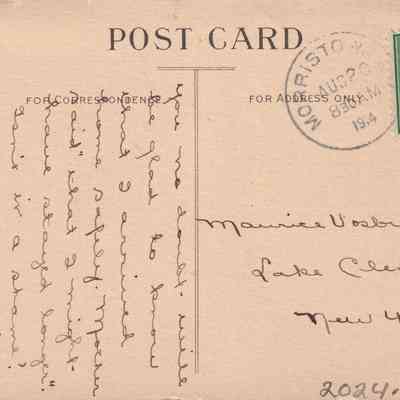 POST CARD
FOR CORRESPONDENCE
FOR ADDRESS ONLY
MORRISTO
AUG 26
830 AM
1914
you no doubt will
be glad to know
that I arrived
home safely. Mother
said "that I might
have stayed longer."
Isn't it a shame?
Maurice Vosbu
Lake Cle
New Y
2024.